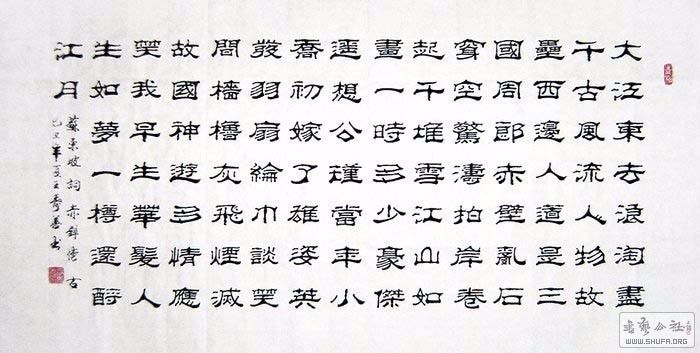 大江東去浪淘盡
千古風流人物故
壘西邊人道是三
國周郎赤壁亂石
穿空驚濤拍岸卷
起千堆雪江山如
畫一時多少豪傑
遥想公瑾當年小
喬初嫁了雄姿英
發羽扇綸巾談笑
間檣櫓灰飛煙滅
故國神遊多情應
笑我早生華髮人
生如夢一樽還酹
江月
蘇東坡詞赤壁懷古
己丑年夏王書
書藝公社
WWW.SHUFA.ORG